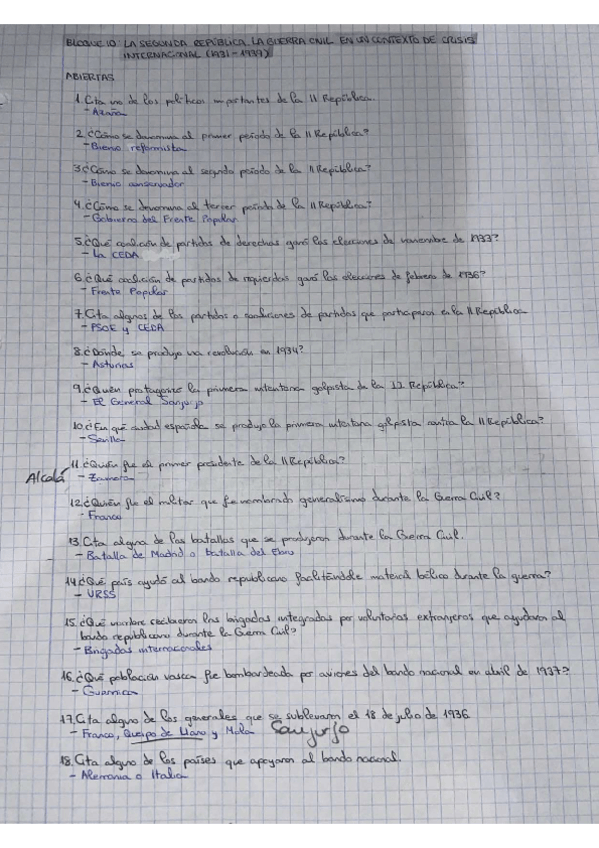 BLOQUE 10: LA SEGUNDA REPÚBLICA. LA GUERRA CIVIL EN UN CONTEXTO DE CRISIS
INTERNACIONAL (1931-1939)
ABIERTAS
1. Cita uno de los políticos importantes de la II República.
- Azaña
2. ¿Cómo se denomina al primer periodo de la II República?
- Bienio reformista
3. ¿Cómo se denomina al segundo periodo de la II República?
- Bienio conservador
4. ¿Cómo se denomina al tercer periodo de la II República?
- Gobierno del Frente Popular
5. ¿Qué coalición de partidos de derechas ganó las elecciones de noviembre de 1933?
- La CEDA
6. ¿Qué coalición de partidos de izquierdas ganó las elecciones de febrero de 1936?
- Frente Popular
7. Cita algunos de los partidos o coaliciones de partidos que participaron en la II República
- PSOE y CEDA
8. ¿Dónde se produjo una revolución en 1934?
- Asturias
9. ¿Quién protagonizó la primera intentona golpista de la II República?
- El General Sanjurjo
10. ¿En qué ciudad española se produjo la primera intentona golpista contra la II República?
- Sevilla
11. ¿Quién fue el primer presidente de la II República?
Alcalá - Zamora
12. ¿Quién fue el militar que fue nombrado generalísimo durante la Guerra Civil?
- Franco
13. Cita alguna de las batallas que se produjeron durante la Guerra Civil.
- Batalla de Madrid o batalla del Ebro
14. ¿Qué país ayudó al bando republicano facilitándole material bélico durante la guerra?
- URSS
15. ¿Qué nombre recibieron las brigadas integradas por voluntarios extranjeros que ayudaron al
bando republicano durante la Guerra Civil?
- Brigadas internacionales
16. ¿Qué población vasca fue bombardeada por aviones del bando nacional en abril de 1937?
- Guernica
17. Cita alguno de los generales que se sublevaron el 18 de julio de 1936
- Franco, Queipo de Llano y Mola Sanjurjo
18. Cita alguno de los países que apoyaron al bando nacional.
- Alemania o Italia